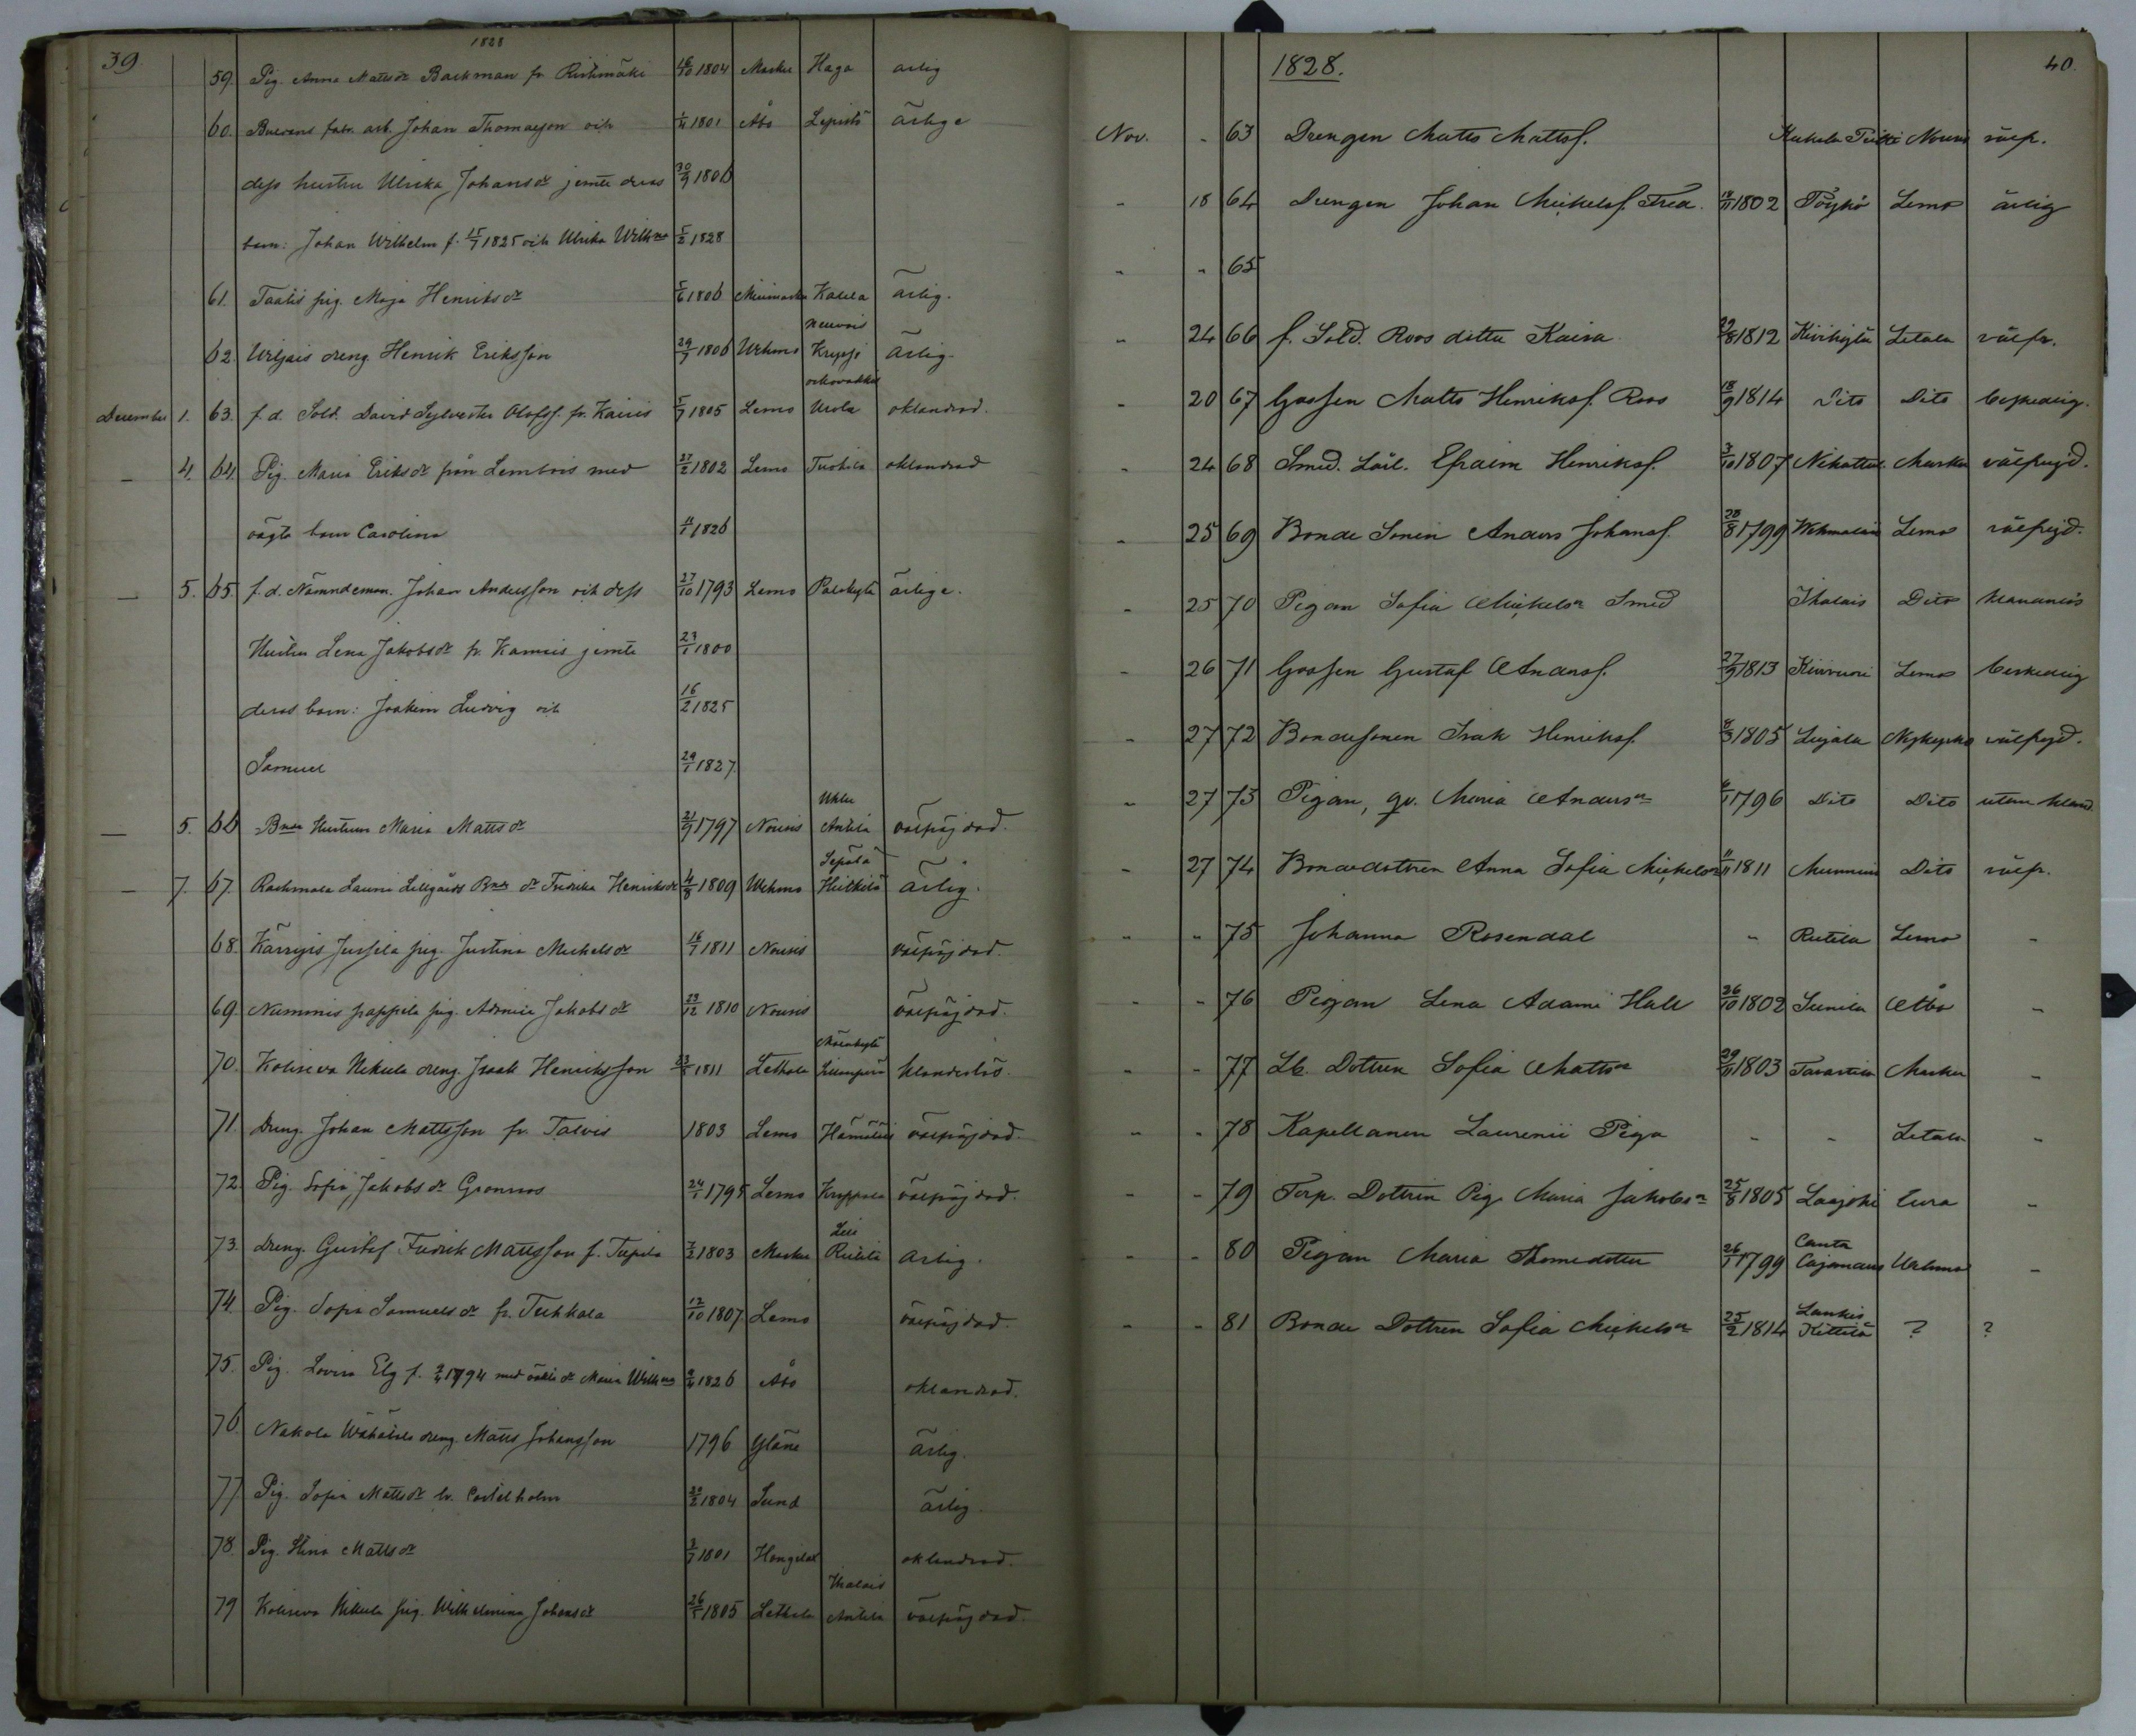 39.
1828
59. Pig. Anna Matsdr Backman fr. Ristimäki 16/10 1804 Masku Haga ärlig
60. fabr. arb. Johan Thomasson och 1801 Åbo Lepistö ärlige
dess hustru Ulrika Johansdr jemte deras 30/9 1806
barn: Johan Wilhelm f. 15/7 1825 och Ulrika Willhna 5/2 1828
61. Taalis pig. Maja Henriksdr 5/6 1806 Kalela ärlig.
Neuvois
62. dreng Henrik Eriksson 29/7 1806 Wehmo ärlig.
December 1. 63. f.d. Sold. David Sylvester Olofss. fr. Kairis 5/7 1805 Lemo oklandrad.
— 4. 64. Pig. Maria Eriksdr från Lembois med 27/2 1802 Lemo Tuohila oklandrad
oägta barn Carolina 11/1 1826
— 5. 65. f.d. Nämndeman. Johan Andersson och dess 27/10 1793 Lemo Palokylä ärlige.
Hustru Lena Jakobsdr fr. Kamois jemte 23/1 1800
deras barn: Joakim Ludvig och 16/2 1825
Samuel 29/1 1827.
— 5. 66 Bnes Hustrun Maria Mattsdr 21/9 1797 Nousis Antila välfräjdad.
Sepälä
— 7. 67. Lauris Lillgårds Bnes dr Fredrika Henriksdr 4/8 1809 Wehmo Heikkilä ärlig.
68. Kärrys Jussila pig. Justina Mickelsdr 16/7 1811 Nousis välfräjdad.
69. Nummis pappila pig. Jakobsdr 23/12 1810 Nousis välfräjdad.
70. Koliseva Nikula dreng. Isaak Henriksson 23/5 1811 Lethala klanderlös.
71. Dreng. Johan Mattsson fr. Talvis 1803 Lemo välfräjdad.
72. Pig. Sofia Jakobsdr Grönroos 24/1 1795 Lemo Kruppala välfräjdad.
73. Dreng. Gustaf Fredrik Mattsson f. Tupila 7/2 1803 Masku ärlig.
74. Pig. Sofia Samuelsdr fr. Tuhkala 12/10 1807 Lemo välfräjdad.
75. Pig. Lovisa Elg f. 1794 med oäkta dr Maria Willhna 1826 Åbo oklandrad.
76. Nakola dreng. Matts Johansson 1796 Yläne ärlig.
77. Pig. Sofia Mattsdr fr. Castelholm 20/2 1804 Sund ärlig.
78. Pig. Stina Mattsdr 3/7 1801 oklandrad.
Ihalais
79 Koliseva Nikula pig. Wilhelmina Johansdr 26/5 1805 Lethala Antila välfräjdad.
1828.
40.
Nov. - 63 Drengen Matts Mattsf. Nousis välfr.
- 18 64 Drengen Johan Mickelsf. Fred. 18/11 1802 Pöykö Lemo ärlig
- - 65
- 24 66 f. Sold. Roos dotter Kaisa 29/8 1812 Kivikylä Letala välfr.
- 20 67 Gossen Matts Henriksf. Roos 18/9 1814 Dito Dito beskedlig.
- 24 68 Smed. Lärl. Efraim Henriksf. 3/10 1807 Masku välfrejd.
- 25 69 Bonde Sonen Anders Johansf. 28/8 1799 Lemo välfrejd.
- 25 70 Pigan Sofia Mickelsdr Smed Ihalais Dito klanderlös
- 26 71 Gossen Gustaf Andersf. 27/9 1813 Kiivuori Lemo beskedlig
- 27 72 Bondesonen Isak Henriksf. 8/3 1805 Lujala Nykyrko välfrejd.
- 27 73 Pigan, qv. Maria Andersdr 1796 Dito Dito utan kland.
- 27 74 Bondedottren Anna Sofia Mickelsdr 11/11 1811 Dito välfr.
- - 75 Johanna Rosendal - Rutila Lemo -
- - 76 Pigan Lena Adami Hall 26/10 1802 Junila Åbo -
- - 77 Lb. Dottren Sofia Mattsdr 29/11 1803 Tavastila Masku -
- - 78 Kapellanen Laurenii Piga - - Letala -
- - 79 Torp. Dottren Pig. Maria Jakobsdr 25/8 1805 Laajoki Eura -
- - 80 Pigan Maria Thomedotter 26/1 1799 Wehmo -
- - 81 Bonde Dottren Sofia Mickelsdr 25/2 1814 Lankis Kittilä ? ?